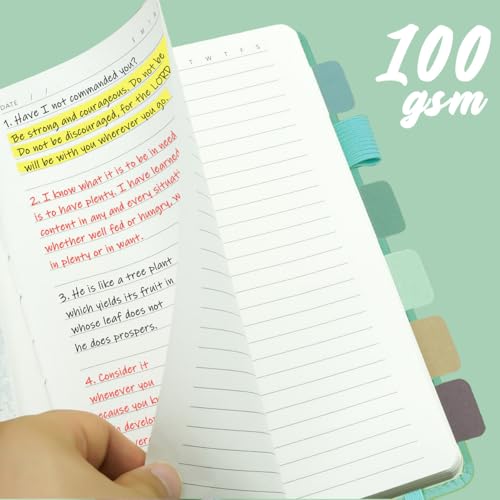 100
gsm
DATE / /
T W T F S
1. Have I not commanded you?
Be strong and courageous. Do not be
Do not be discouraged, for the LORD
will be with you wherever you go.
2. I know what it is to be in need
is to have plenty. I have learned
content in any and every
whether well fed or hungry,
in plenty or in want.
3. He is like a tree plant
which yields its fruit in
whose leaf does not
he does prospers.
4. Consider it
whenever you
because you